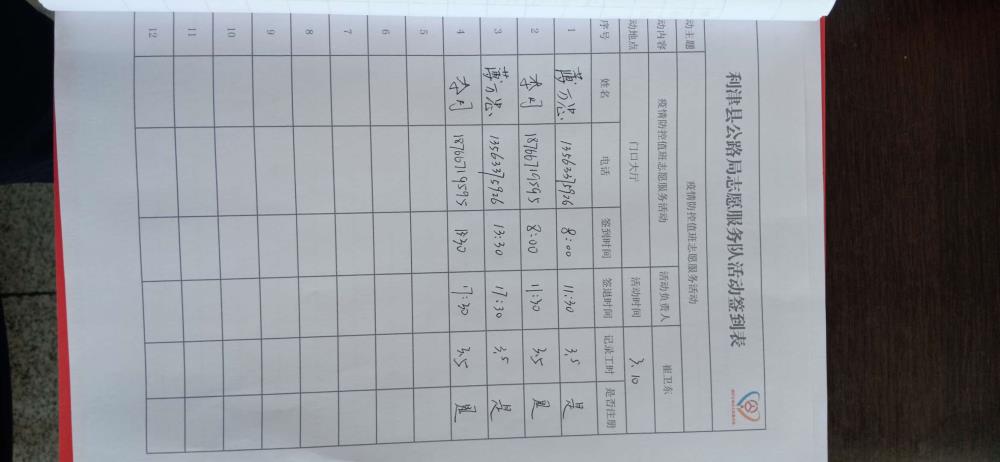 利津县公路局志愿服务队活动签到表
动主题 疫情防控值班志愿服务活动
动内容 疫情防控值班志愿服务活动 活动负责人 崔卫东
动地点 门口大厅 活动时间 3.10
序号 姓名 电话 签到时间 签退时间 记录工时 是否注册
1 薄方忠 13563375926 8:00 11:30 3.5 是
2 李凡 18766719595 8:00 11:30 3.5 是
3 薄方忠 13563375926 13:30 17:30 3.5 是
4 李凡 18766719595 13:30 17:30 3.5 是
5
6
7
8
9
10
11
12